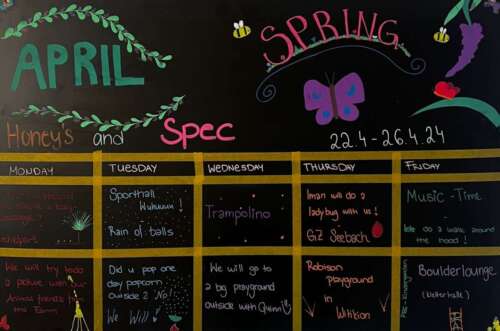 APRIL
SPRING
Honey's and Spec
22.4 - 26.4.24
MONDAY
TUESDAY
WEDNESDAY
THURSDAY
FRIDAY
Sporthall
Wuhuuuu!
Rain of balls
Trampolino
Iman will do a
ladybug with us!
GZ Seebach
Music - Time
do a walk around
the hood!
We will try todo
a picture with our
Animal friends
Farm
Did u pop one
day popcorn
outside? No!
We Will
We will go to
a big playground
outside with Quinn
Robison
playground
in
Witikon
Pre-Kindergarten
Boulderlounge